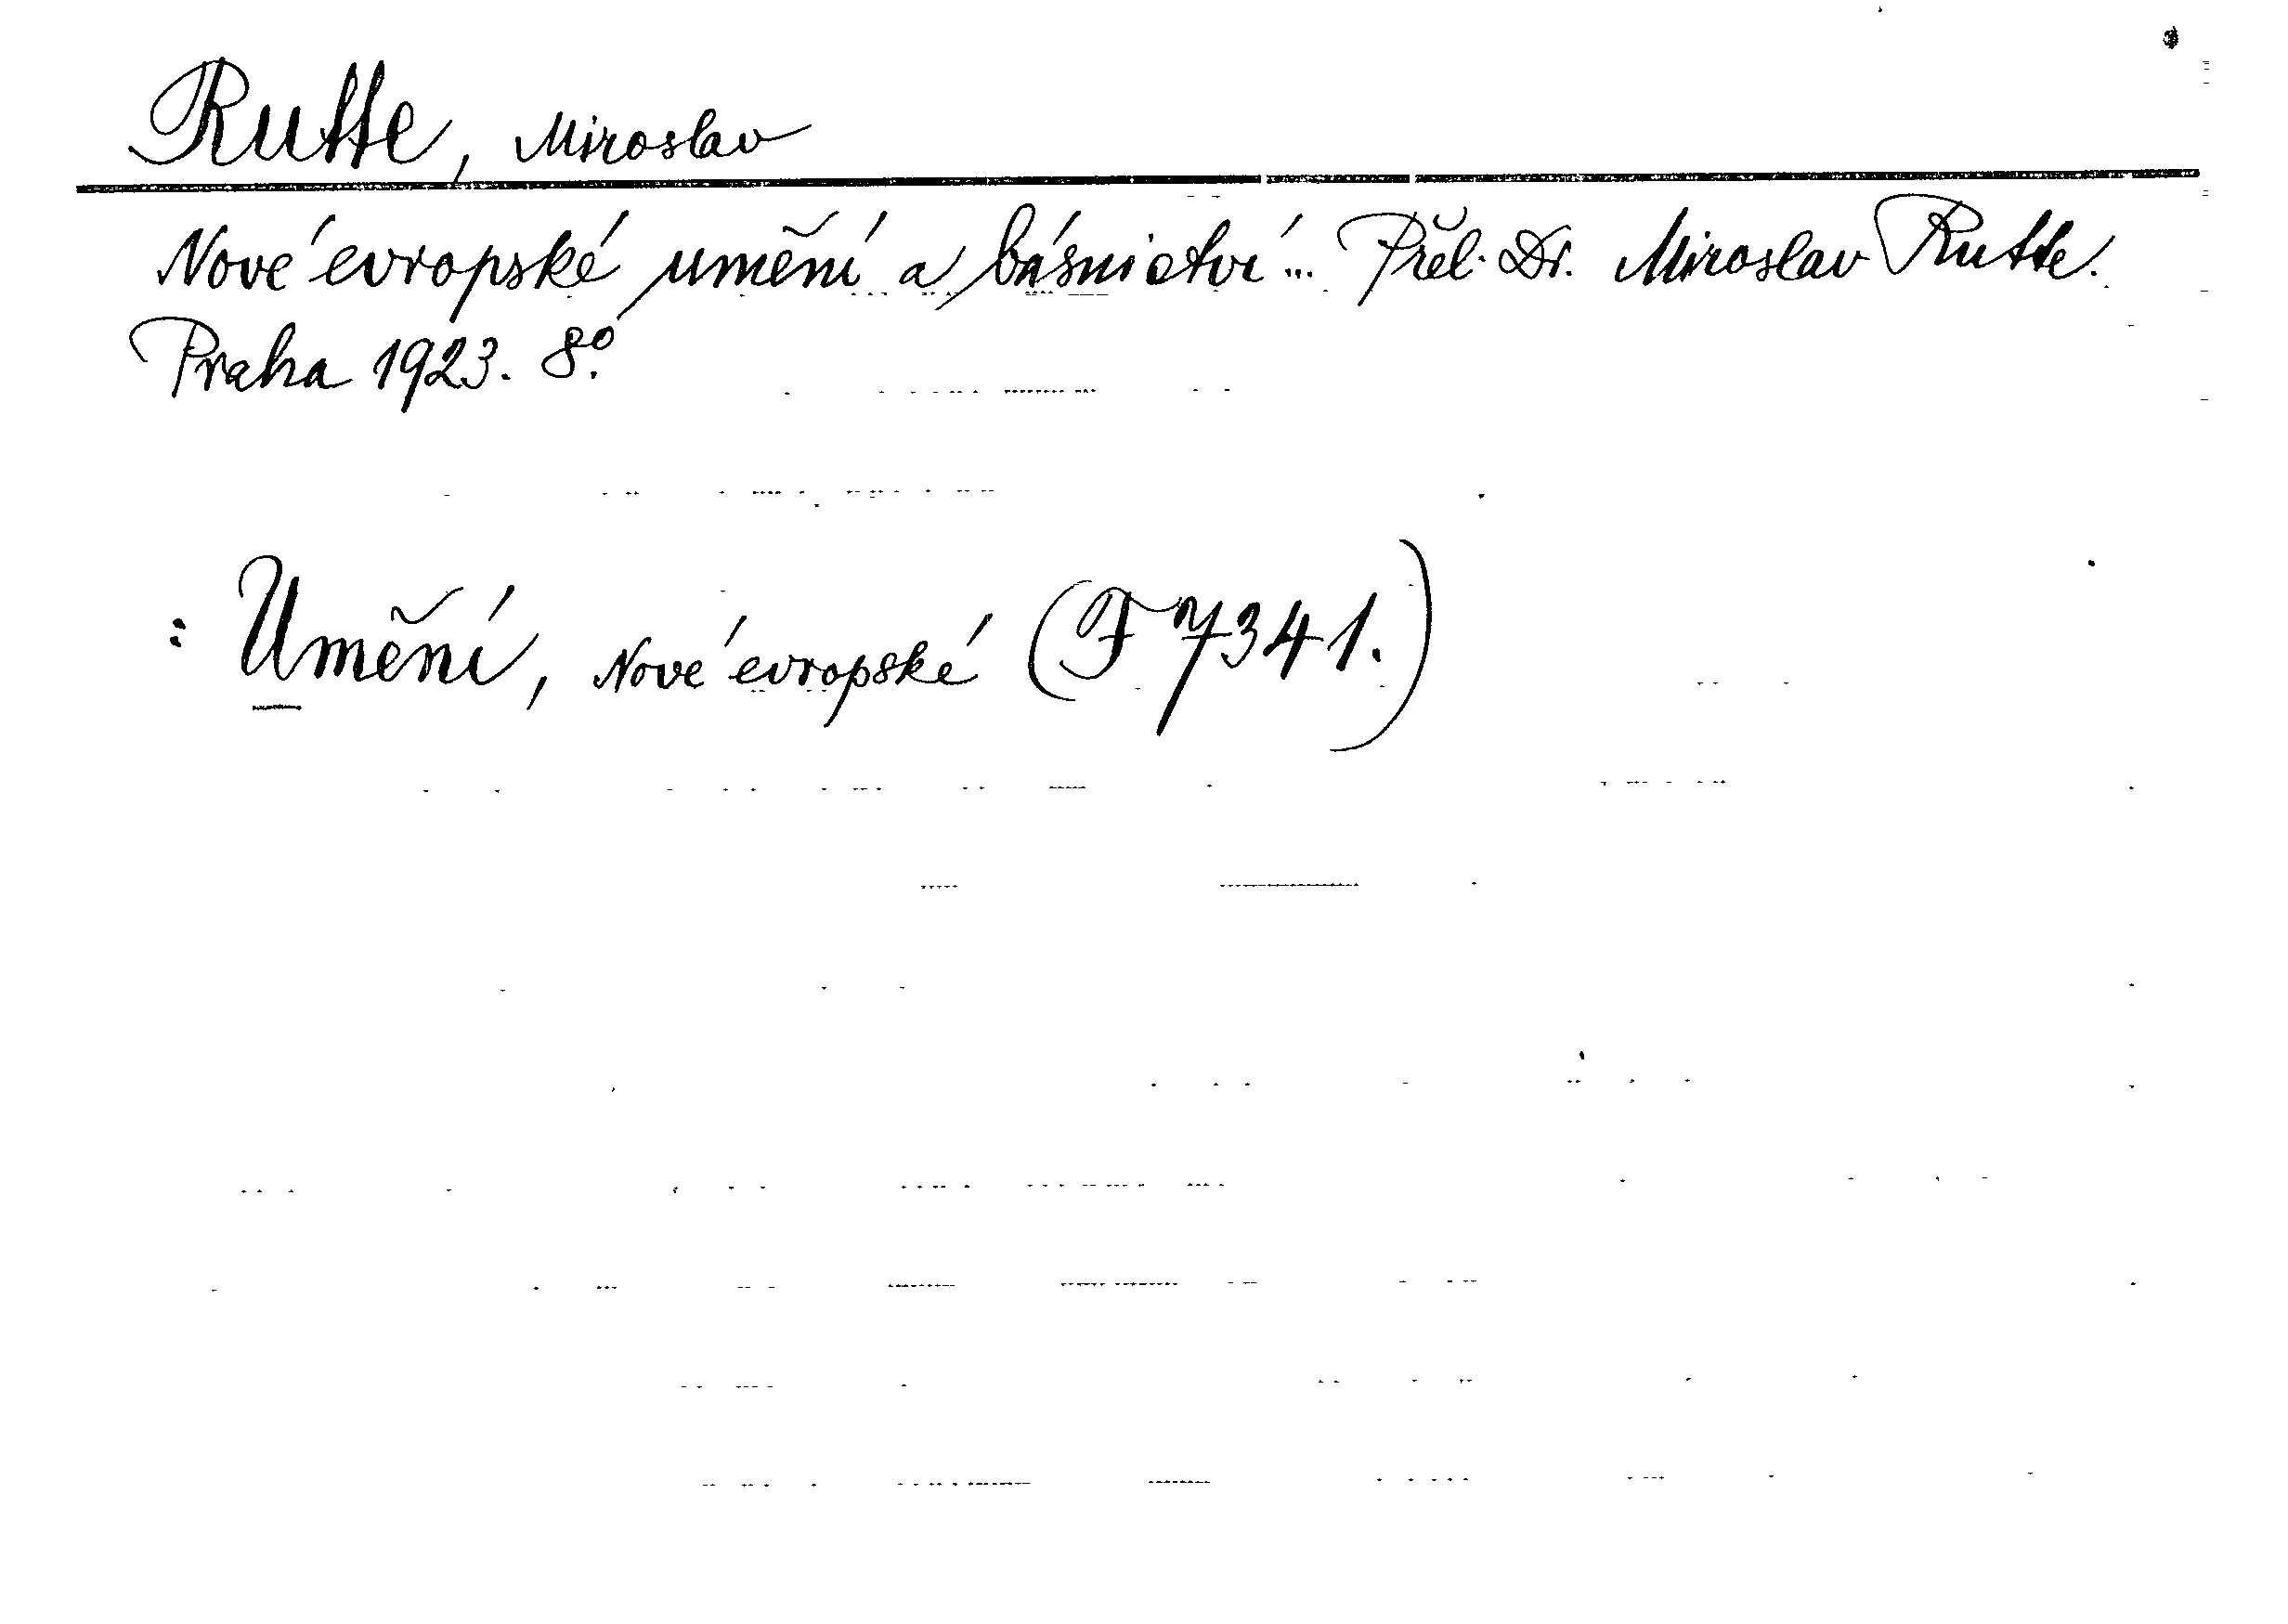 Rutte, Miroslav
Nové evropské umění a básnictví... Přel. Dr. Miroslav Rutte.
Praha 1923. 8°.
: Umění, Nové evropské (F 7341.)